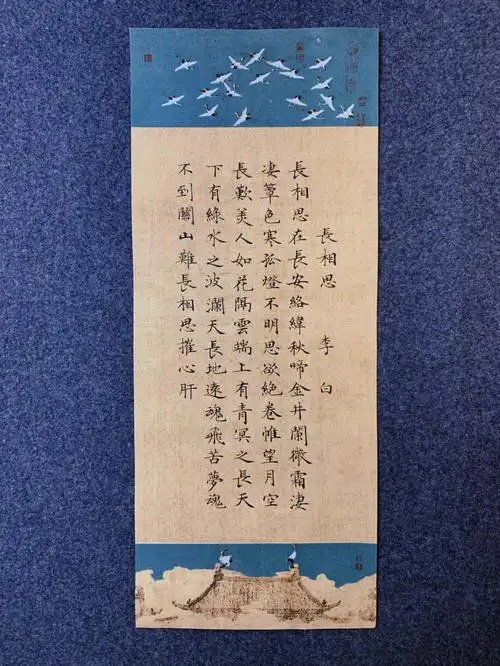 長相思 李白
長相思在長安絡緯秋啼金井闌微霜淒
淒簟色寒孤燈不明思欲絶卷帷望月空
長歎美人如花隔雲端上有青冥之長天
下有綠水之波瀾天長地遠魂飛苦夢魂
不到關山難長相思摧心肝